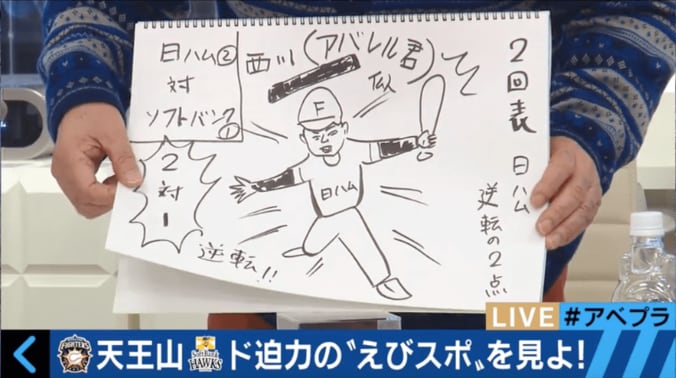 2回表 日ハム
逆転の2点
西川(アバレル君)
似
日ハム②
対
ソフトバンク①
2対1
逆転!!
F
日ハム
LIVE #アベプラ
FIGHTERS
SoftBank
HAWKS
天王山 ド迫力の〝えびスポ〟を見よ!